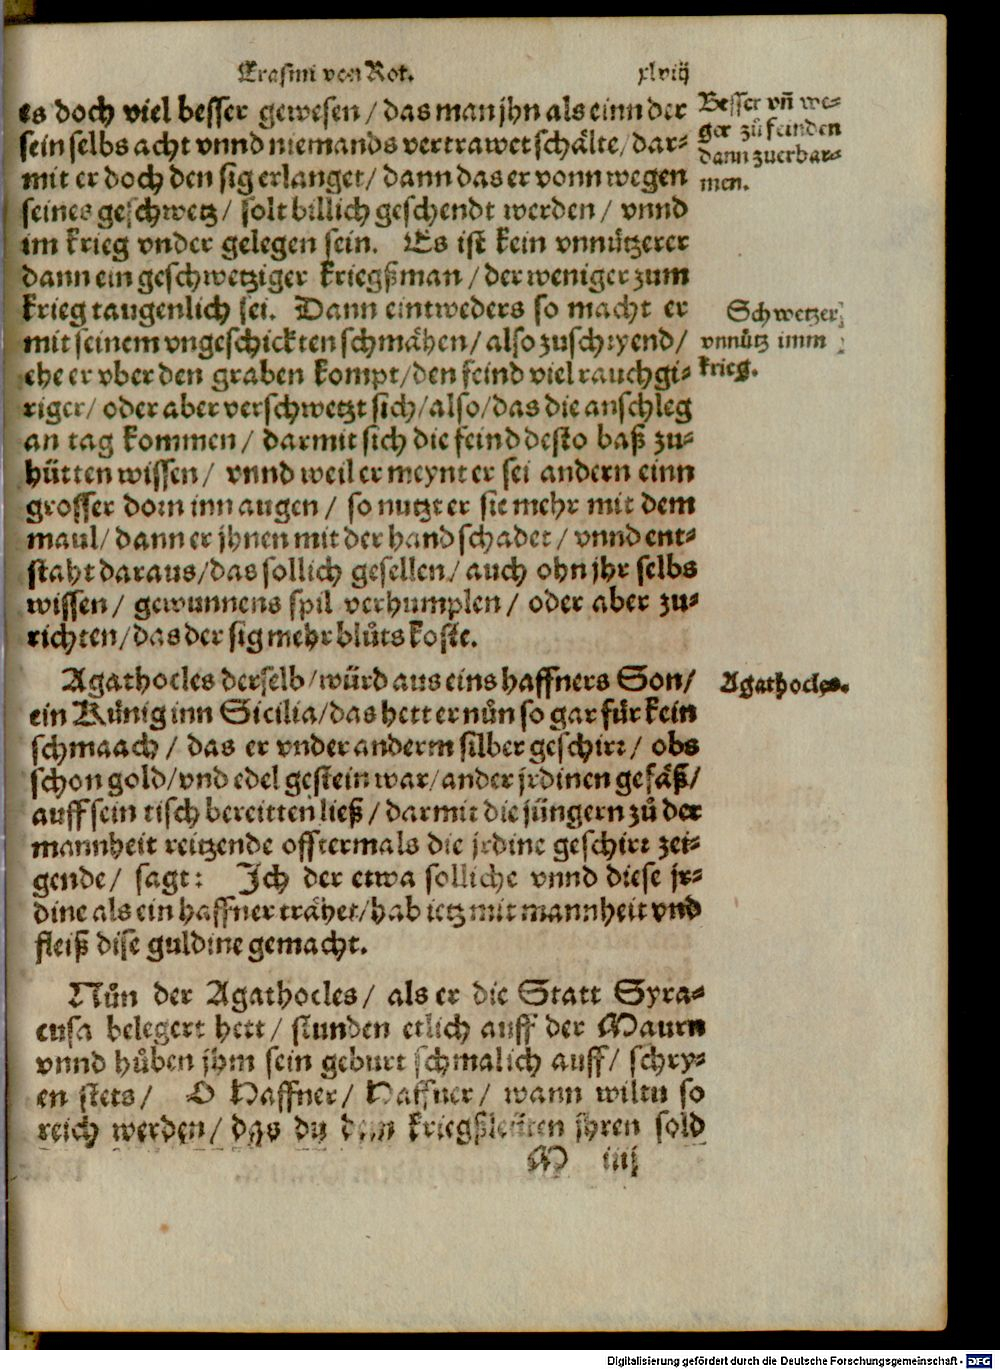 Erasmi von Rot. xlviij
es doch viel besser gewesen / das man jhn als einn der
sein selbs acht vnnd niemands vertrawet schälte / dar⸗
mit er doch den sig erlanget / dann das er vonn wegen
seines geschwetz / solt billich geschendt werden / vnnd
im krieg vnder gelegen sein. Es ist kein vnnützerer
dann ein geschwetziger kriegßman / der weniger zum
krieg taugenlich sei. Dann eintweders so macht er
mit seinem vngeschickten schmähen / also zuschryend /
ehe er vber den graben kompt / den feind viel rauchgi⸗
riger / oder aber verschwetzt sich / also / das die anschleg
an tag kommen / darmit sich die feind desto baß zu⸗
hütten wissen / vnnd weil er meynt er sei andern einn
grosser dorn inn augen / so nutzt er sie mehr mit dem
maul / dann er jhnen mit der hand schadet / vnnd ent⸗
staht daraus / das sollich gesellen / auch ohn jhr selbs
wissen / gewunnens spil verhumplen / oder aber zu⸗
richten / das der sig mehr blůts koste.
Besser vñ we⸗
ger zů feinden
dann zuerbar⸗
men.
Schwetzer
vnnütz imm
krieg.
Agathocles derselb / würd aus eins haffners Son /
ein Künig inn Sicilia / das hett er nůn so gar für kein
schmaach / das er vnder anderm silber geschirr / obs
schon gold / vnd edel gestein war / ander jrdinen gefäß /
auff sein tisch bereitten ließ / darmit die jüngern zů der
mannheit reitzende offtermals die jrdine geschirr zei⸗
gende / sagt: Ich der etwa solliche vnnd diese jr⸗
dine als ein haffner träyet / hab ietz mit mannheit vnd
fleiß dise guldine gemacht.
Agathocles.
Nůn der Agathocles / als er die Statt Syra⸗
cusa belegert hett / stunden etlich auff der Maurn
vnnd hůben jhm sein geburt schmalich auff / schry⸗
en stets / O Haffner / Haffner / wann wiltu so
reich werden / das du den kriegßleüten jhren sold
M iiij
Digitalisierung gefördert durch die Deutsche Forschungsgemeinschaft - DFG